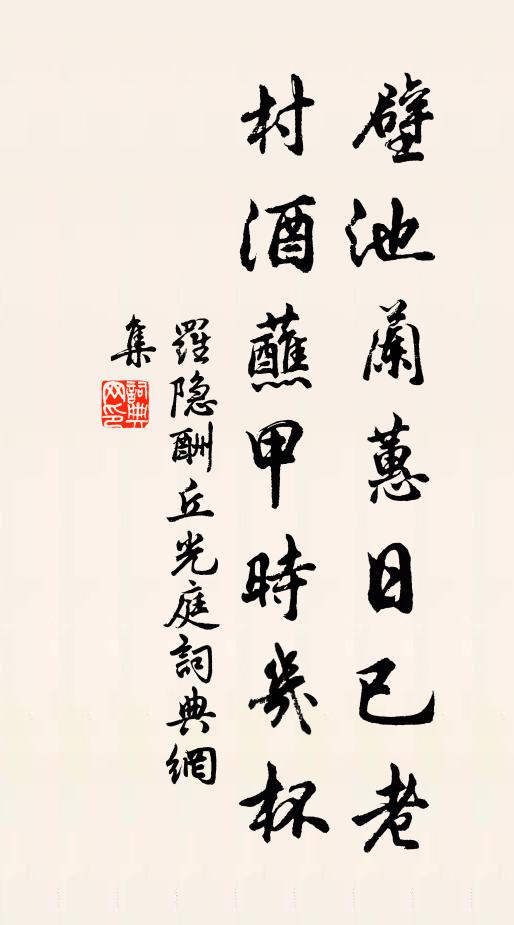 壁池蘭蕙日已老
村酒蘸甲時幾杯
羅隱酬丘光庭詞典網
集
詞典
网印